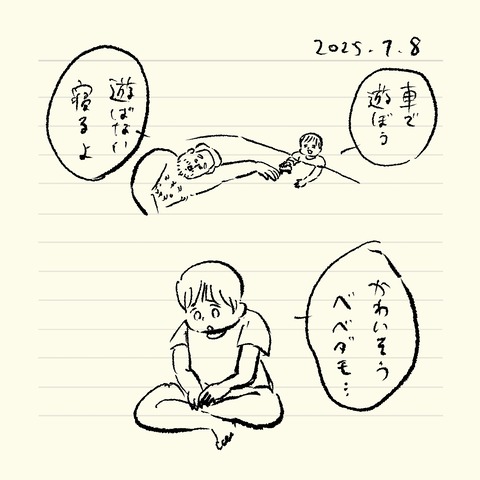 2025.7.8
車で
遊ぼう
遊ばない
寝るよ
かわいそう
べべダモ…